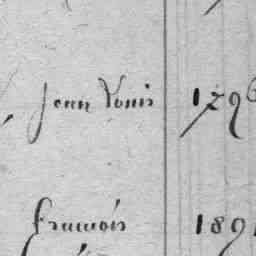 Jean Louis 1796
François 1891